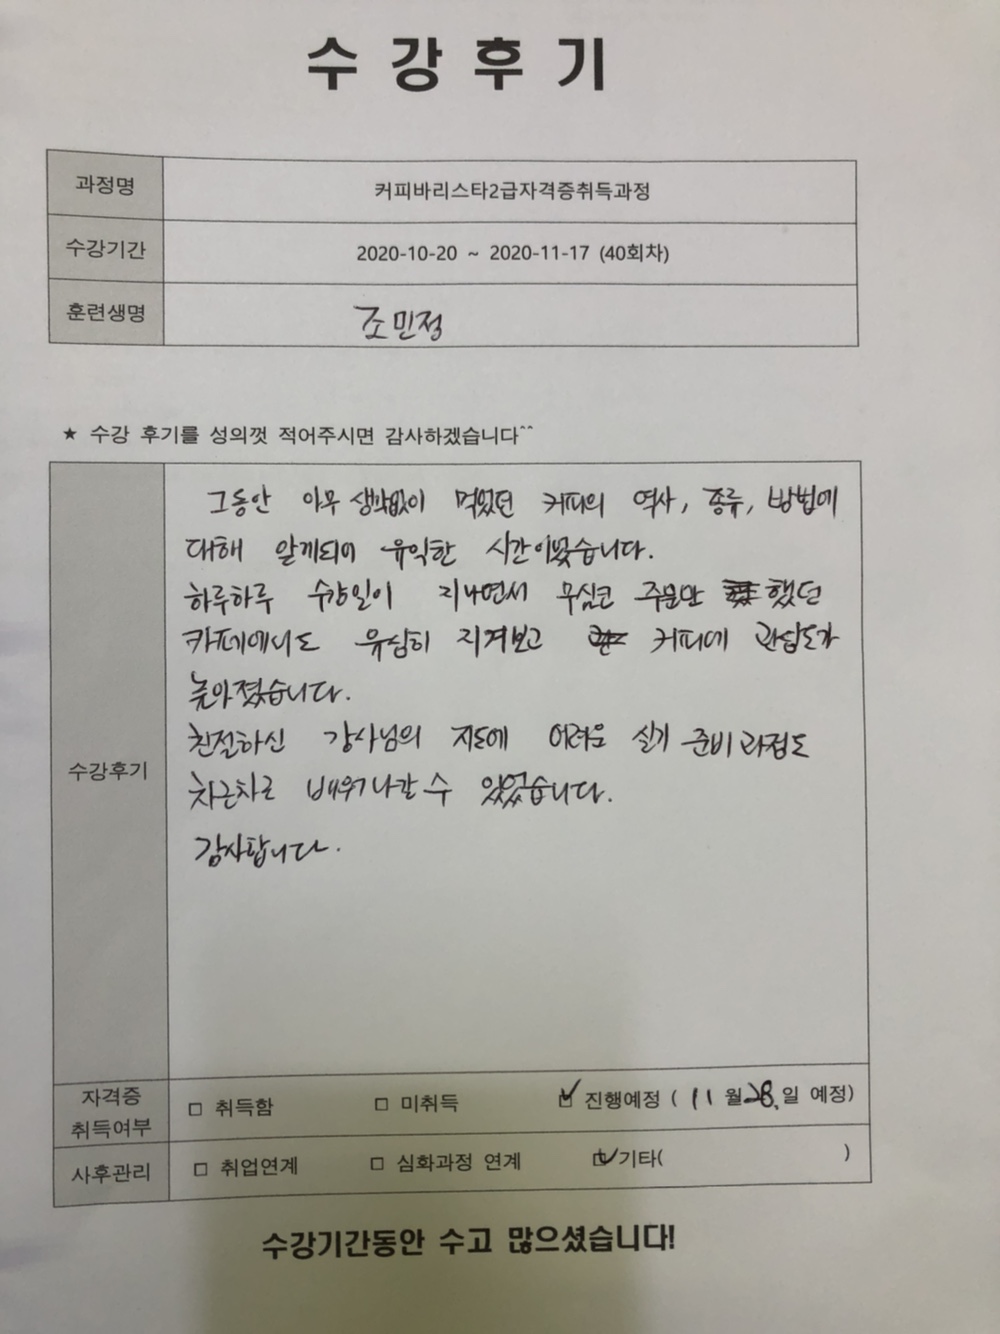 수강후기
과정명 커피바리스타2급자격증취득과정
수강기간 2020-10-20 ~ 2020-11-17 (40회차)
훈련생명 조민정
★ 수강 후기를 성의껏 적어주시면 감사하겠습니다^^
그동안 아무 생각없이 먹었던 커피의 역사, 종류, 방법에
대해 알게되어 유익한 시간이었습니다.
하루하루 수강일이 지나면서 무심코 주문만 했던
카페에서도 유심히 지켜보고 커피에 관심도가
높아졌습니다.
친절하신 강사님의 지도에 어려운 실기 준비과정도
수강후기
차근차근 배워나갈 수 있었습니다.
감사합니다.
자격증
취득여부 □ 취득함 □ 미취득 ☑ 진행예정 ( 11 월 28 일 예정)
사후관리 □ 취업연계 □ 심화과정 연계 ☑ 기타( )
수강기간동안 수고 많으셨습니다!